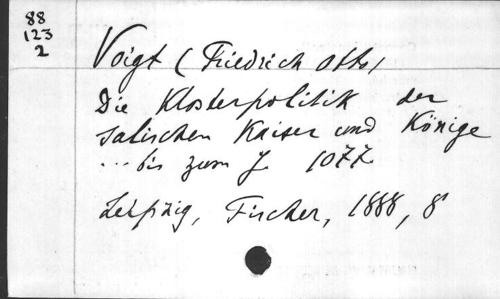 88
123
2
Voigt (Friedrich Otto)
Die Klosterpolitik der
Salischen Kaiser und Könige
... bis zum J. 1077
Leipzig, Fischer, 1888, 8°